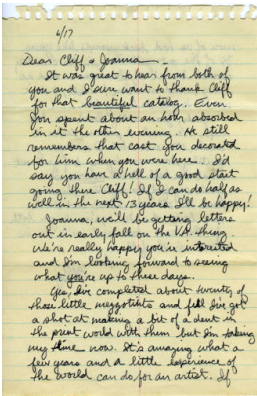 6/17
Dear Cliff & Joanna -
It was great to hear from both of
you and I sure want to thank Cliff
for that beautiful catalog. Even
Jon spent about an hour absorbed
in it the other evening. He still
remembers that cast you decorated
for him when you were here. I'd
say you have a hell of a good start
going there Cliff! If I can do half as
well in the next 13 years I'll be happy!
Joanna, we'll be getting letters
out in early fall on the V.A. thing.
We're really happy you're interested
and I'm looking forward to seeing
what you're up to these days.
Yes, I've completed about twenty of
those little mezzotints and feel I've got
a shot at making a bit of a dent in
the print world with them but I'm taking
my time now. It's amazing what a
few years and a little experience of
the world can do for an artist. If